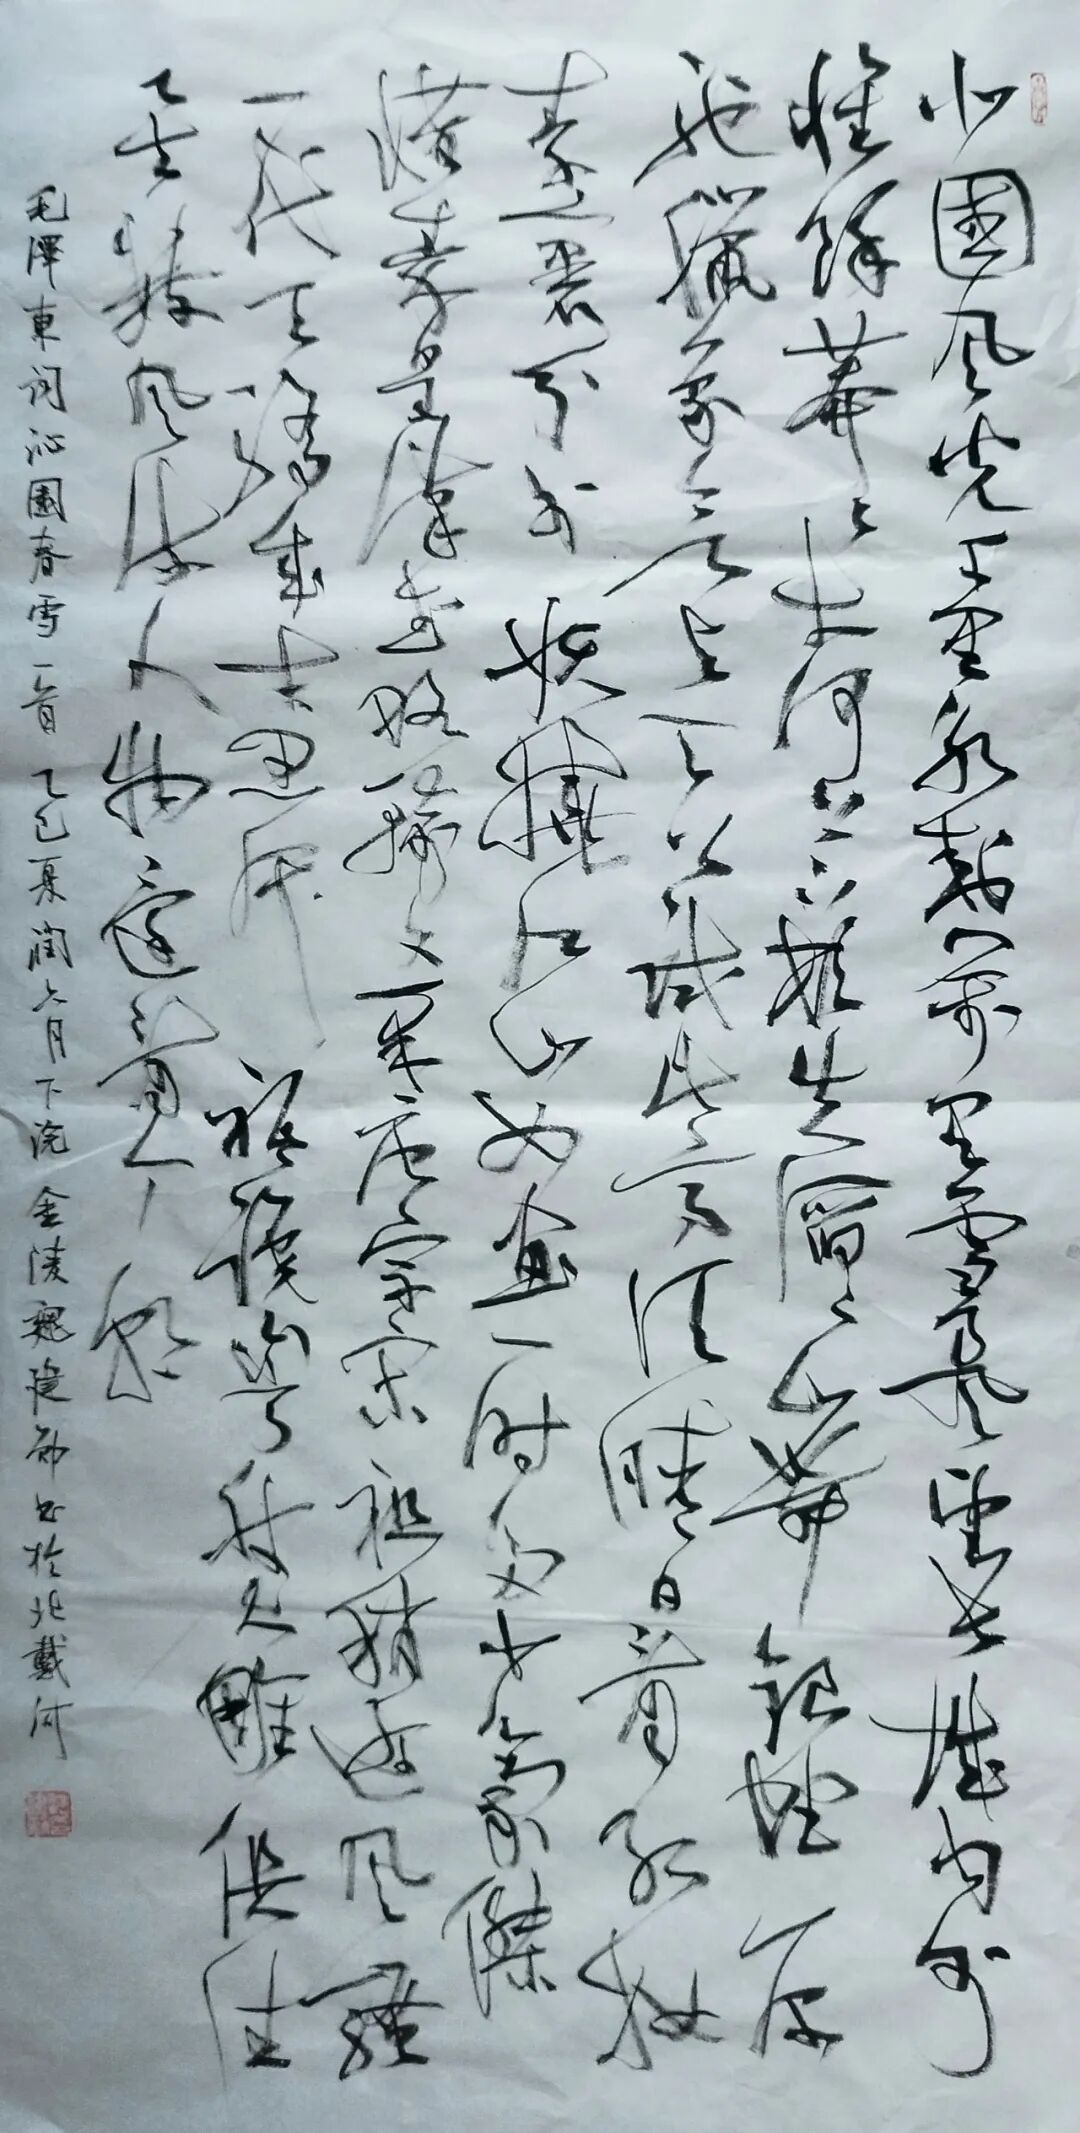 北國風光千里冰封萬里雪飄望長城內外
惟餘莽莽大河上下頓失滔滔山舞銀蛇原
馳臘象欲与天公試比高須晴日看紅妝
素裹分外妖嬈江山如畫一時多少豪傑
惜秦皇漢武略輸文采唐宗宋祖稍遜風騷
一代天驕成吉思汗祇識彎弓射大雕俱往
矣數風流人物還看今朝
毛澤東詞沁園春雪一首 乙巳夏閏六月下浣 金陵魏隆書於北戴河